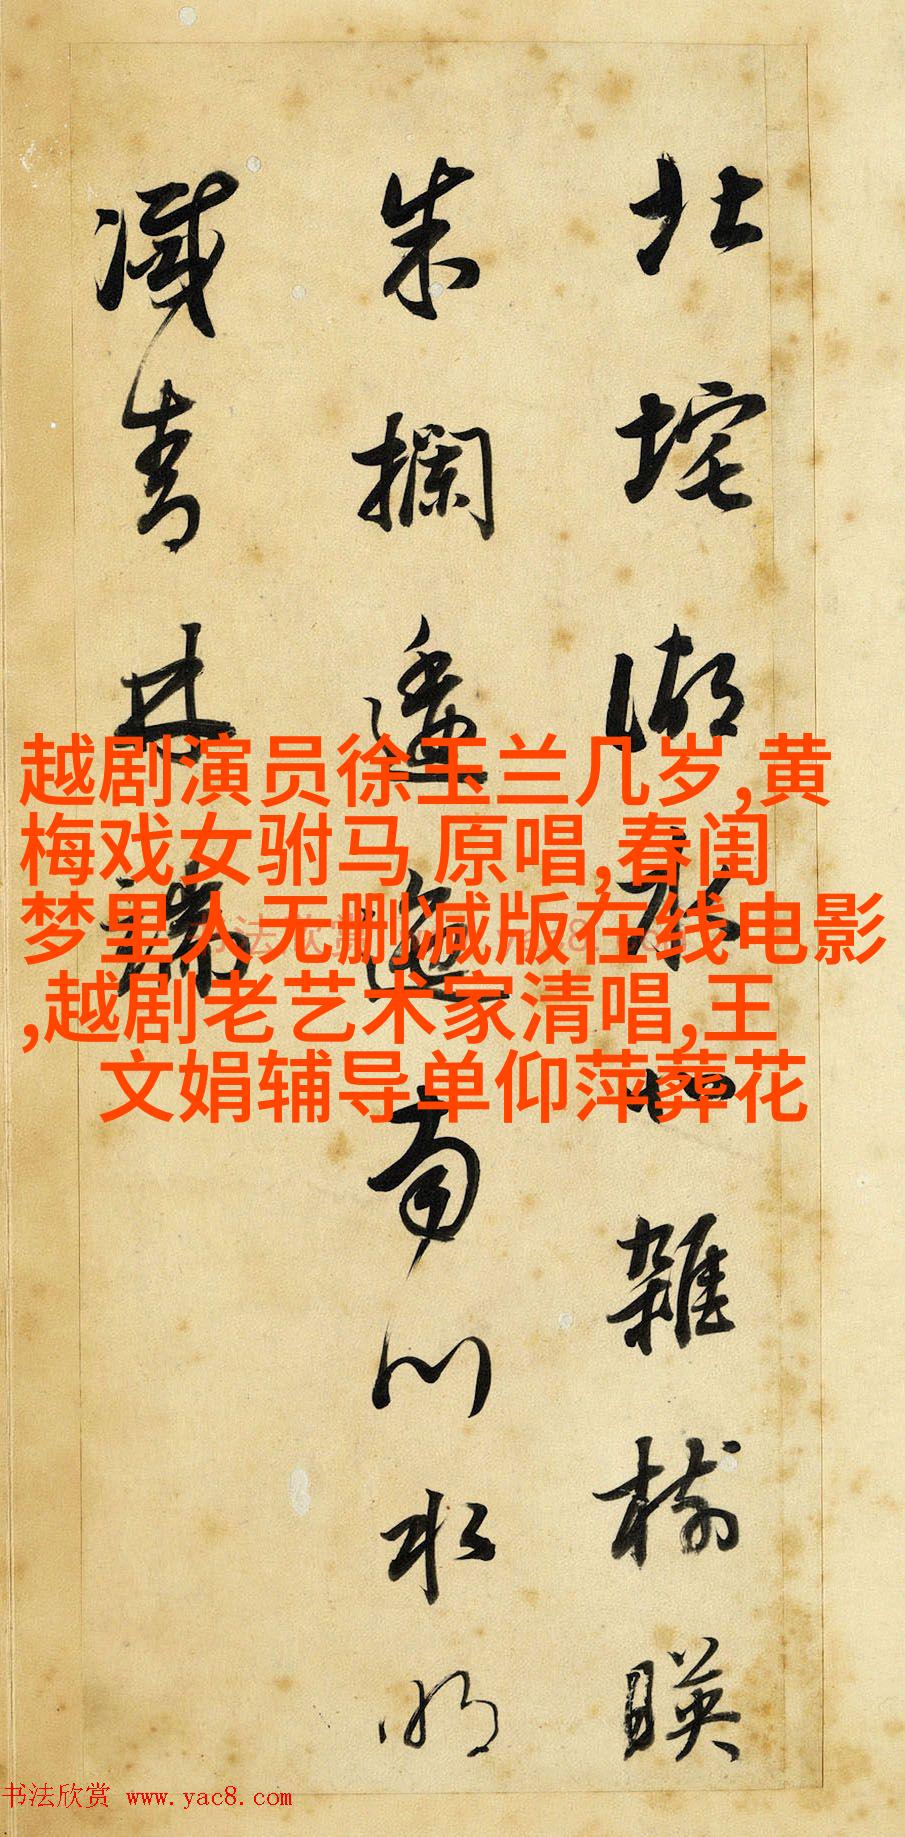 北垞湖水北雜樹暎
朱欄逶迤南川水明
滅青林端
越剧演员徐玉兰几岁,黄
梅戏女驸马 原唱,春闺
梦里人无删减版在线电影
,越剧老艺术家清唱,王
文娟辅导单仰萍葬花
书法欣赏 www.yac8.com